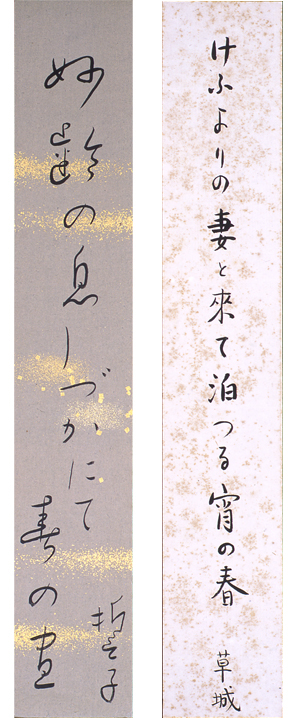 けふよりの妻と來て泊つる宵の春
草城
妙齢の息しづかにて
春の昼
誓子